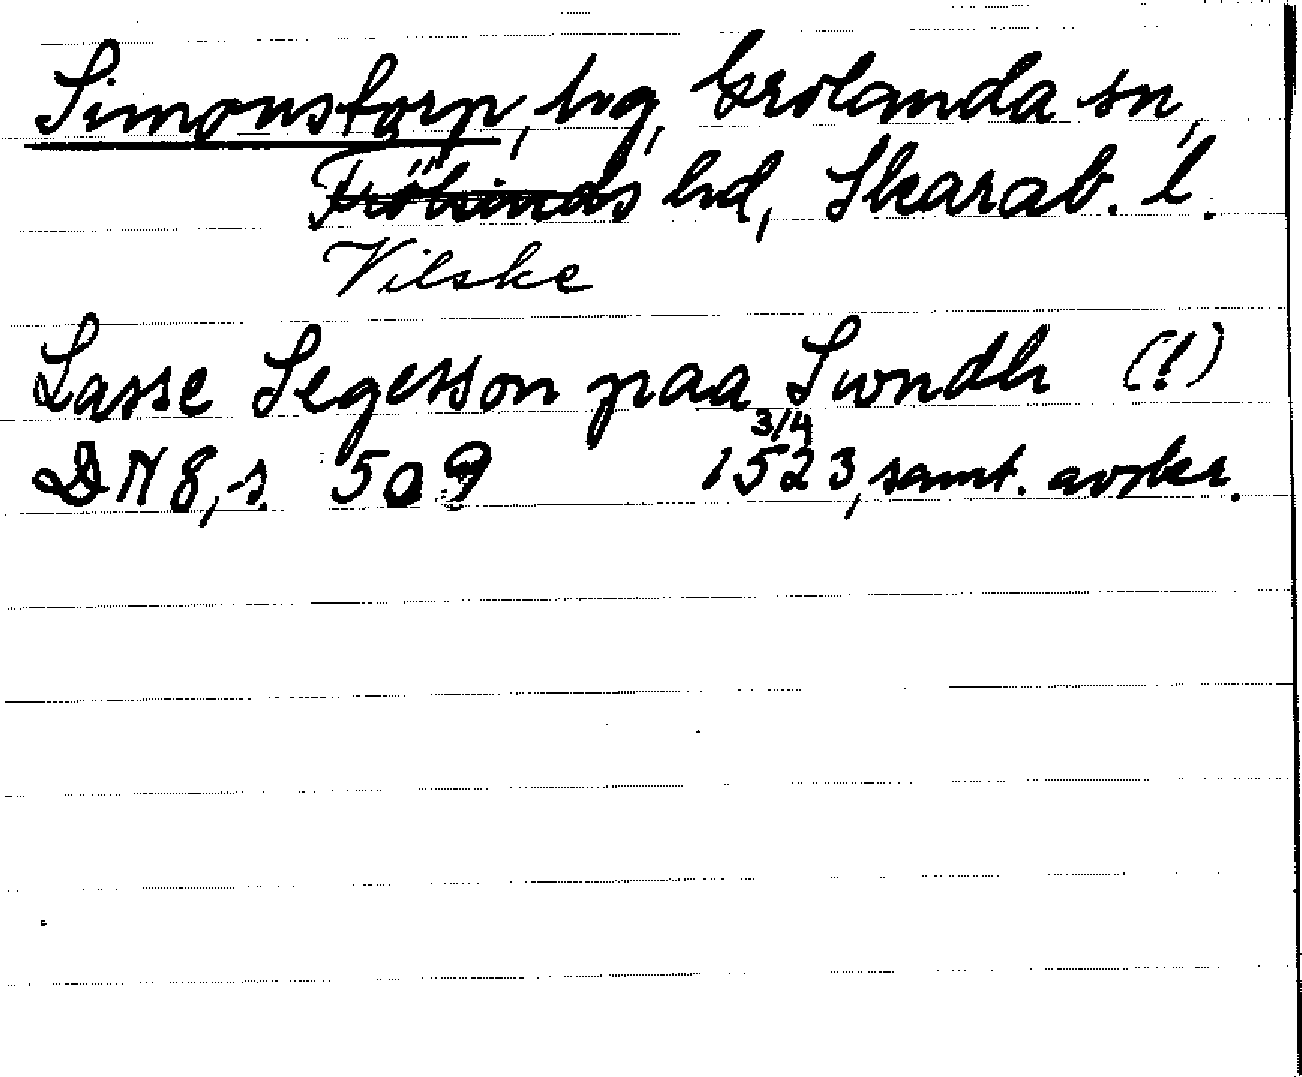 Simonstorp, hg, Grolanda sn,
Frökinds hd, Skarab. l.
Vilske
Lasse Segesson paa Swndh (!)
DN 8, s. 509 3/4 1523, samt. avskr.